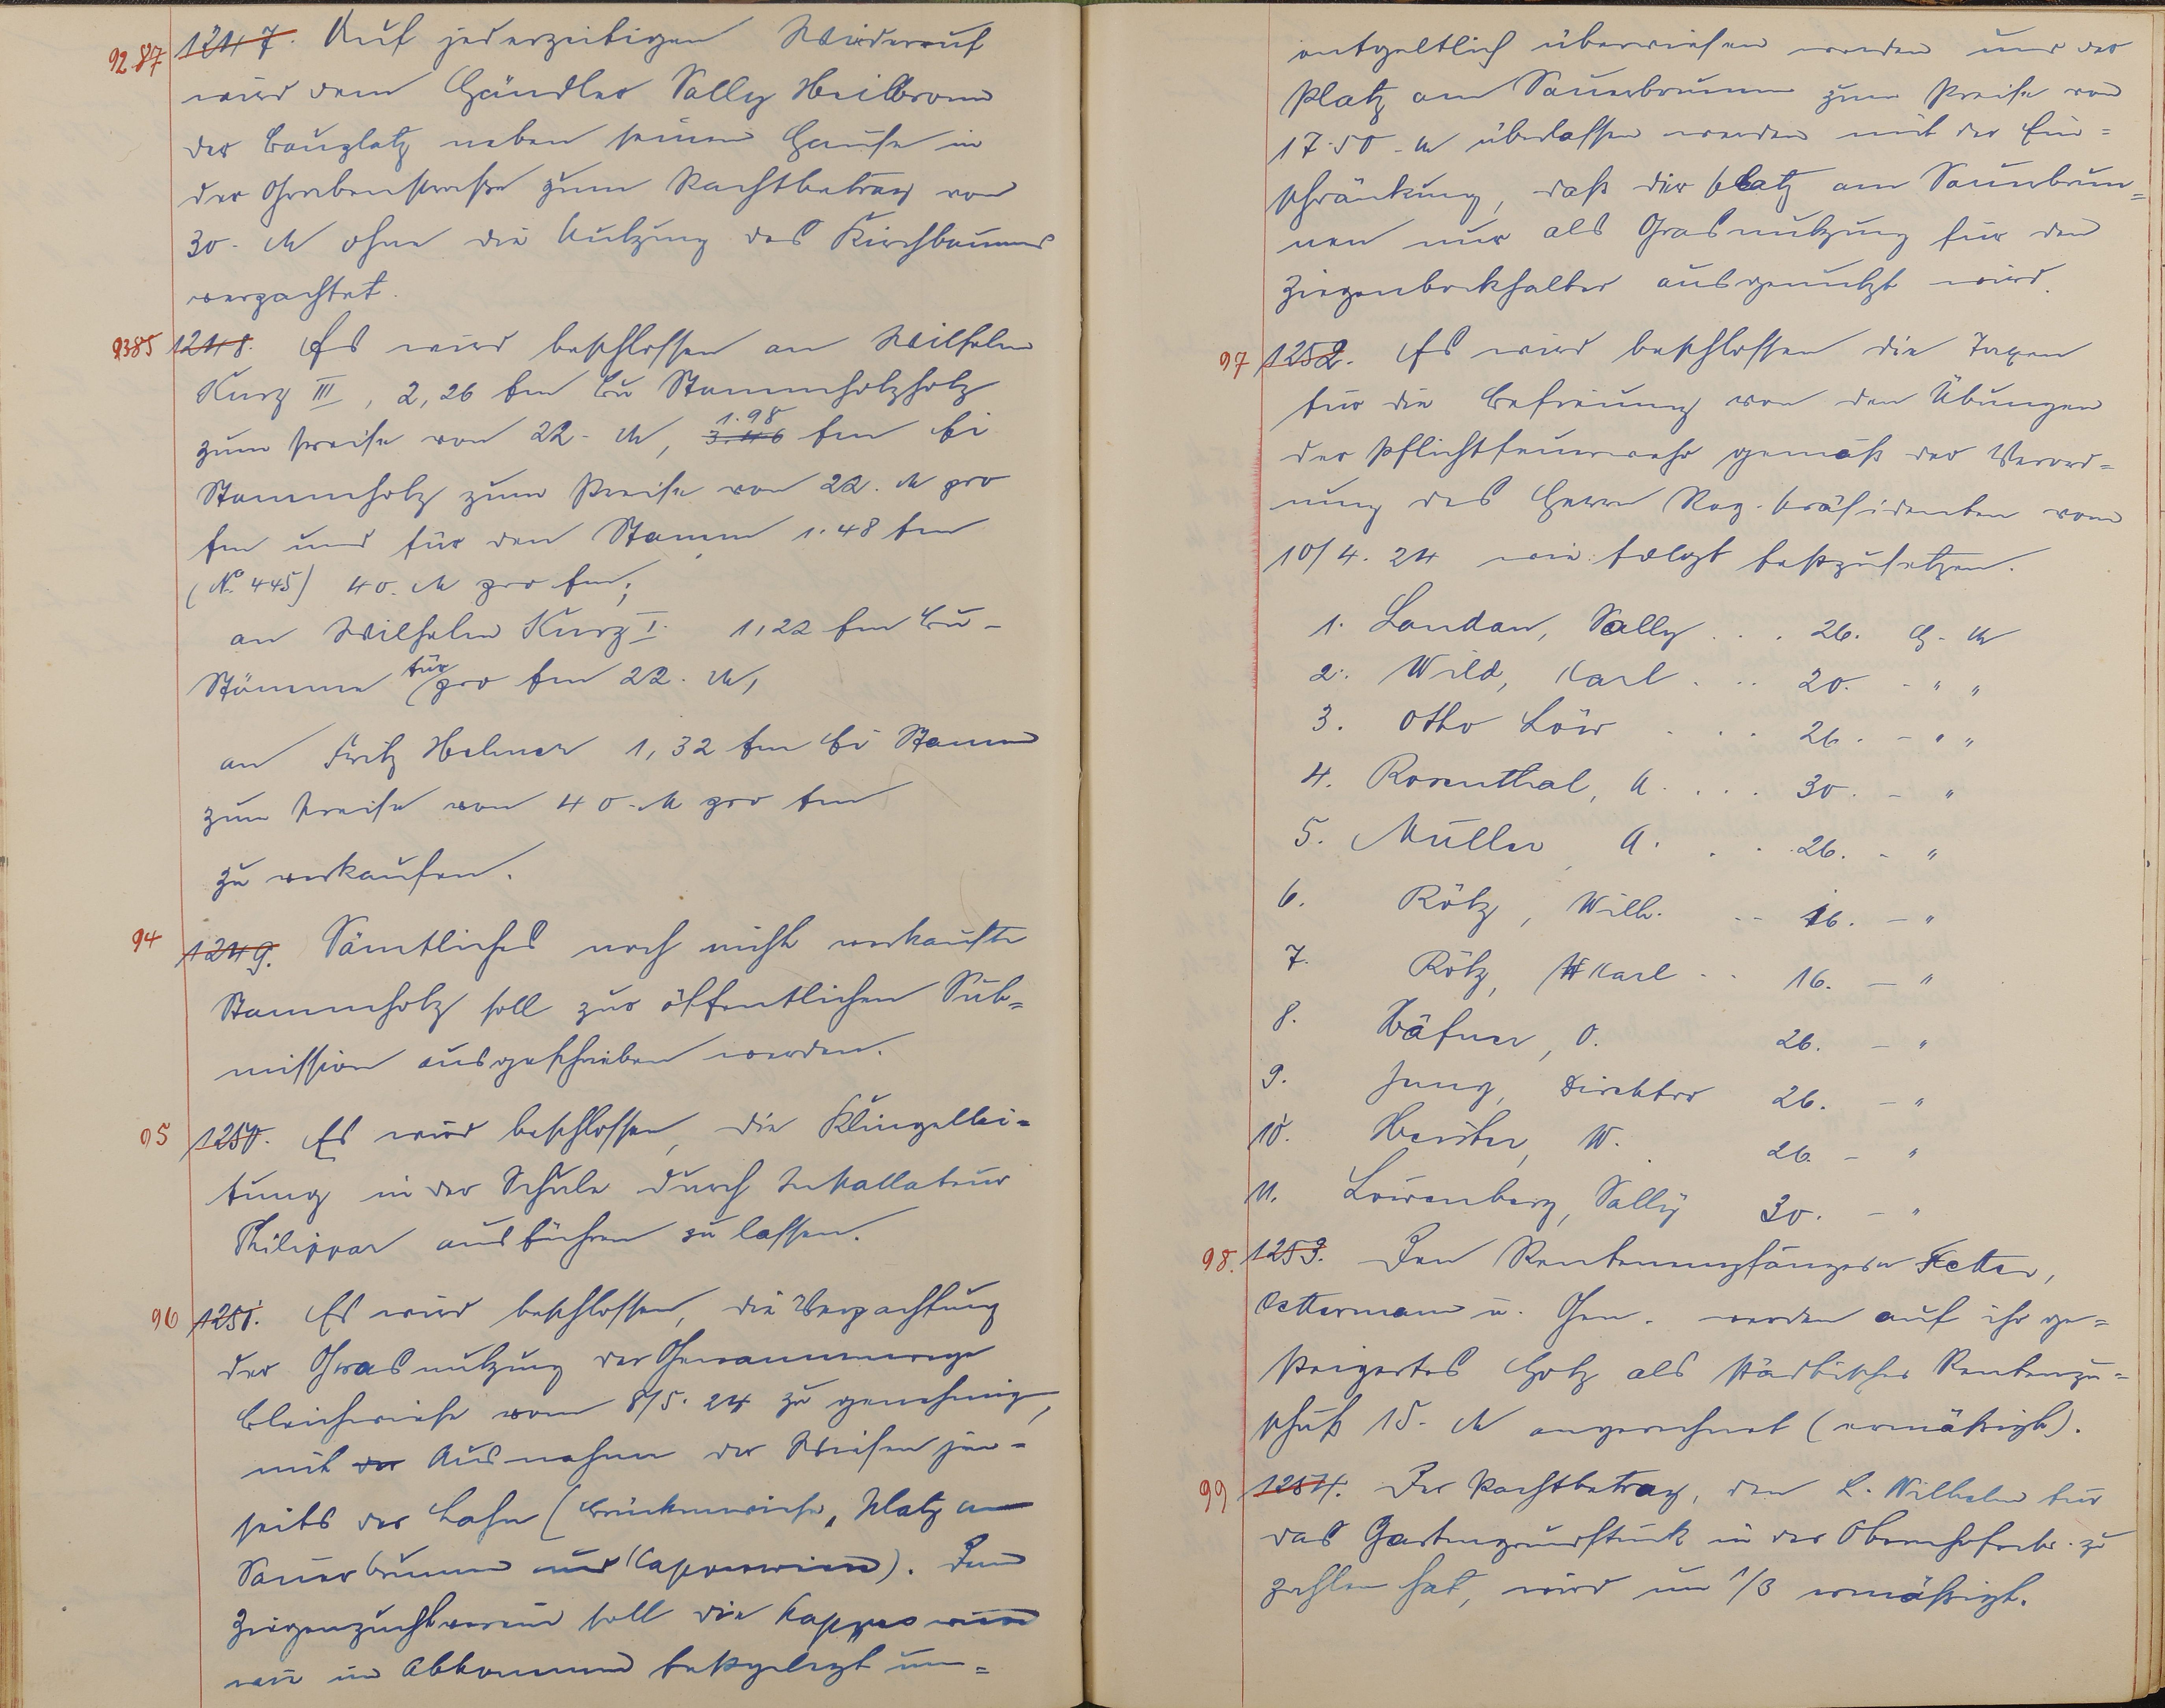 92.87 1247. Auf jederzeitigen Widerruf
wird dem Händler Sally Heilbronn
der Bauplatz neben seinem Hause in
der Grabenstraße zum Pachtbetrag von
30.- M ohne die Nutzung des Kirschbaumes
verpachtet.
9385 1248. Es wird beschlossen an Wilhelm
Kurz III, 2,26 fm Bu Stammholzholz
zum Preise von 22.- M, 3.46 1.98 fm Ei
Stammholz zum Preise von 22. M pro
fm und für den Stamm 1.48 fm
(No. 445) 40. M pro fm;
an Wilhelm Kurz I. 1,22 fm Bu-
Stämme für pro fm 22. M,
an Fritz Helmer 1,32 fm Ei Stamm
zum Preise von 40.- M pro fm
zu verkaufen.
94 1249. Sämtliches noch nicht verkaufte
Stammholz soll zur öffentlichen Sub=
mission ausgeschrieben werden.
95 1250. Es wird beschlossen, die Klingellei=
tung in der Schule durch Installateur
Philippar ausführen zu lassen.
96 1251. Es wird beschlossen, die Verpachtung
der Grasnutzung der
Bleichwiese vom 8/5. 24 zu genehmigen,
mit der Ausnahme der Wiesen jen=
seits der Lahn (Brückenwiese, Platz am
Sauerbrunnen und Kappeswiese). Dem
Ziegenzuchtverein soll die Kappeswiese
wie im Abkommen festgelegt un=
entgeltlich überwiesen werden und der
Platz am Sauerbrunnen zum Preise von
17.50.- M überlassen werden mit der Ein=
schränkung, daß der Platz am Sauerbrun=
nen nur als Grasnutzung für den
Ziegenbockhalter ausgenutzt wird.
97 1252. Es wird beschlossen die Taxen
für die Befreiung von den Übungen
der Pflichtfeuerwehr gemäß der Verord=
nung des Herrn Reg. Präsidenten vom
10/4. 24 wie folgt festzusetzen.
1. Landau, Sally . . . 26. G. M
2. Wild, Karl . . . 20. - " "
3. Otto Löw . . . 26. - " "
4. Rosenthal, A. . . . 30. - "
5. Müller, A. . . 26. - "
6. Rötz, Wilh. -- 16. - "
7. Rötz, Karl - - 16. - "
8. Häfner, O. 26. - "
9. Jung, Direktor 26. - "
10. W. 26. - "
11. Löwenberg, Sally 30. - "
98. 1253. Den Rentenempfängern Fetter,
Ostermann u. Gen. werden auf ihr ge=
steigertes Holz als städtischer Rentenzu=
schuß 15.- M angerechnet (ermäßigt).
99 1254. Der Pachtbetrag, den L. Wilhelm für
das Gartengrundstück in der Obernhoferstr. zu
zahlen hat, wird um 1/3 ermäßigt.